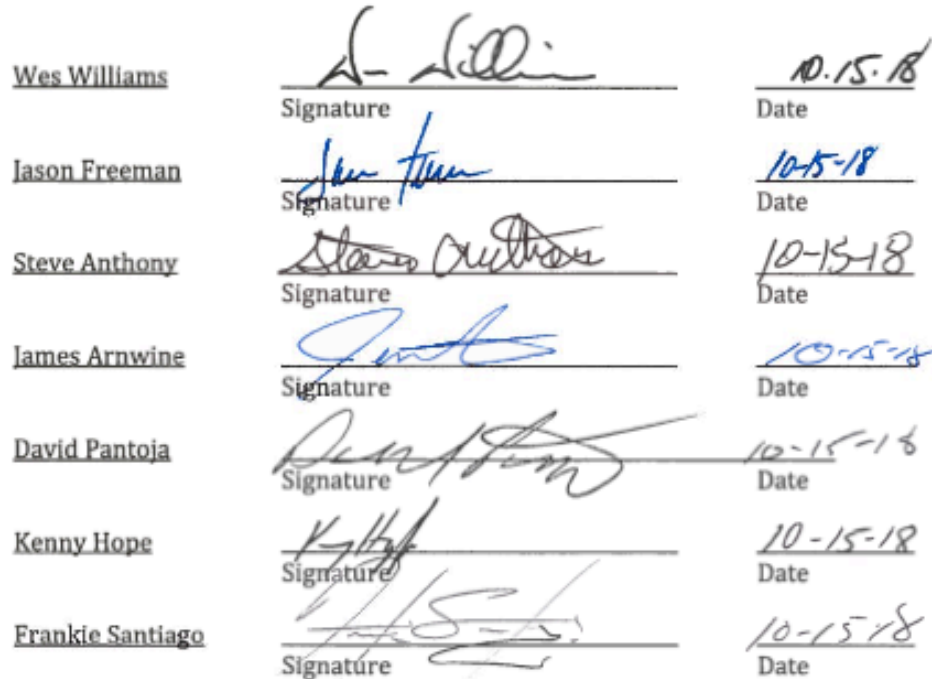 Wes Williams W Willi 10.15.18
Signature Date
Jason Freeman 10-15-18
Signature Date
Steve Anthony Steve Anthony 10-15-18
Signature Date
James Arnwine 10-15-18
Signature Date
David Pantoja 10-15-18
Signature Date
Kenny Hope 10-15-18
Signature Date
Frankie Santiago 10-15-18
Signature Date